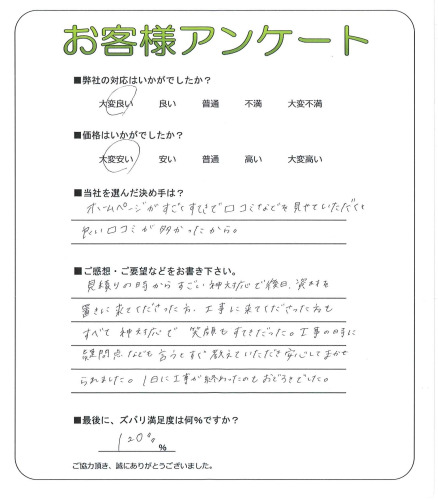 お客様アンケート
■弊社の対応はいかがでしたか？
大変良い 良い 普通 不満 大変不満
■価格はいかがでしたか？
大変安い 安い 普通 高い 大変高い
■当社を選んだ決め手は？
ホームページがすごくすてきで口コミなどを見せていただくと
良い口コミが多かったから。
■ご感想・ご要望などをお書き下さい。
見積りの時からすごい神対応で後日、資料を
置きに来てくださった方、工事に来てくださった方も
すべて神対応で笑顔もすてきだった。工事の時に
疑問点なども言うとすぐ教えていただき安心してまかせ
られました。1日に工事が終わったのもおどろきでした。
■最後に、ズバリ満足度は何%ですか？
120% %
ご協力頂き、誠にありがとうございました。